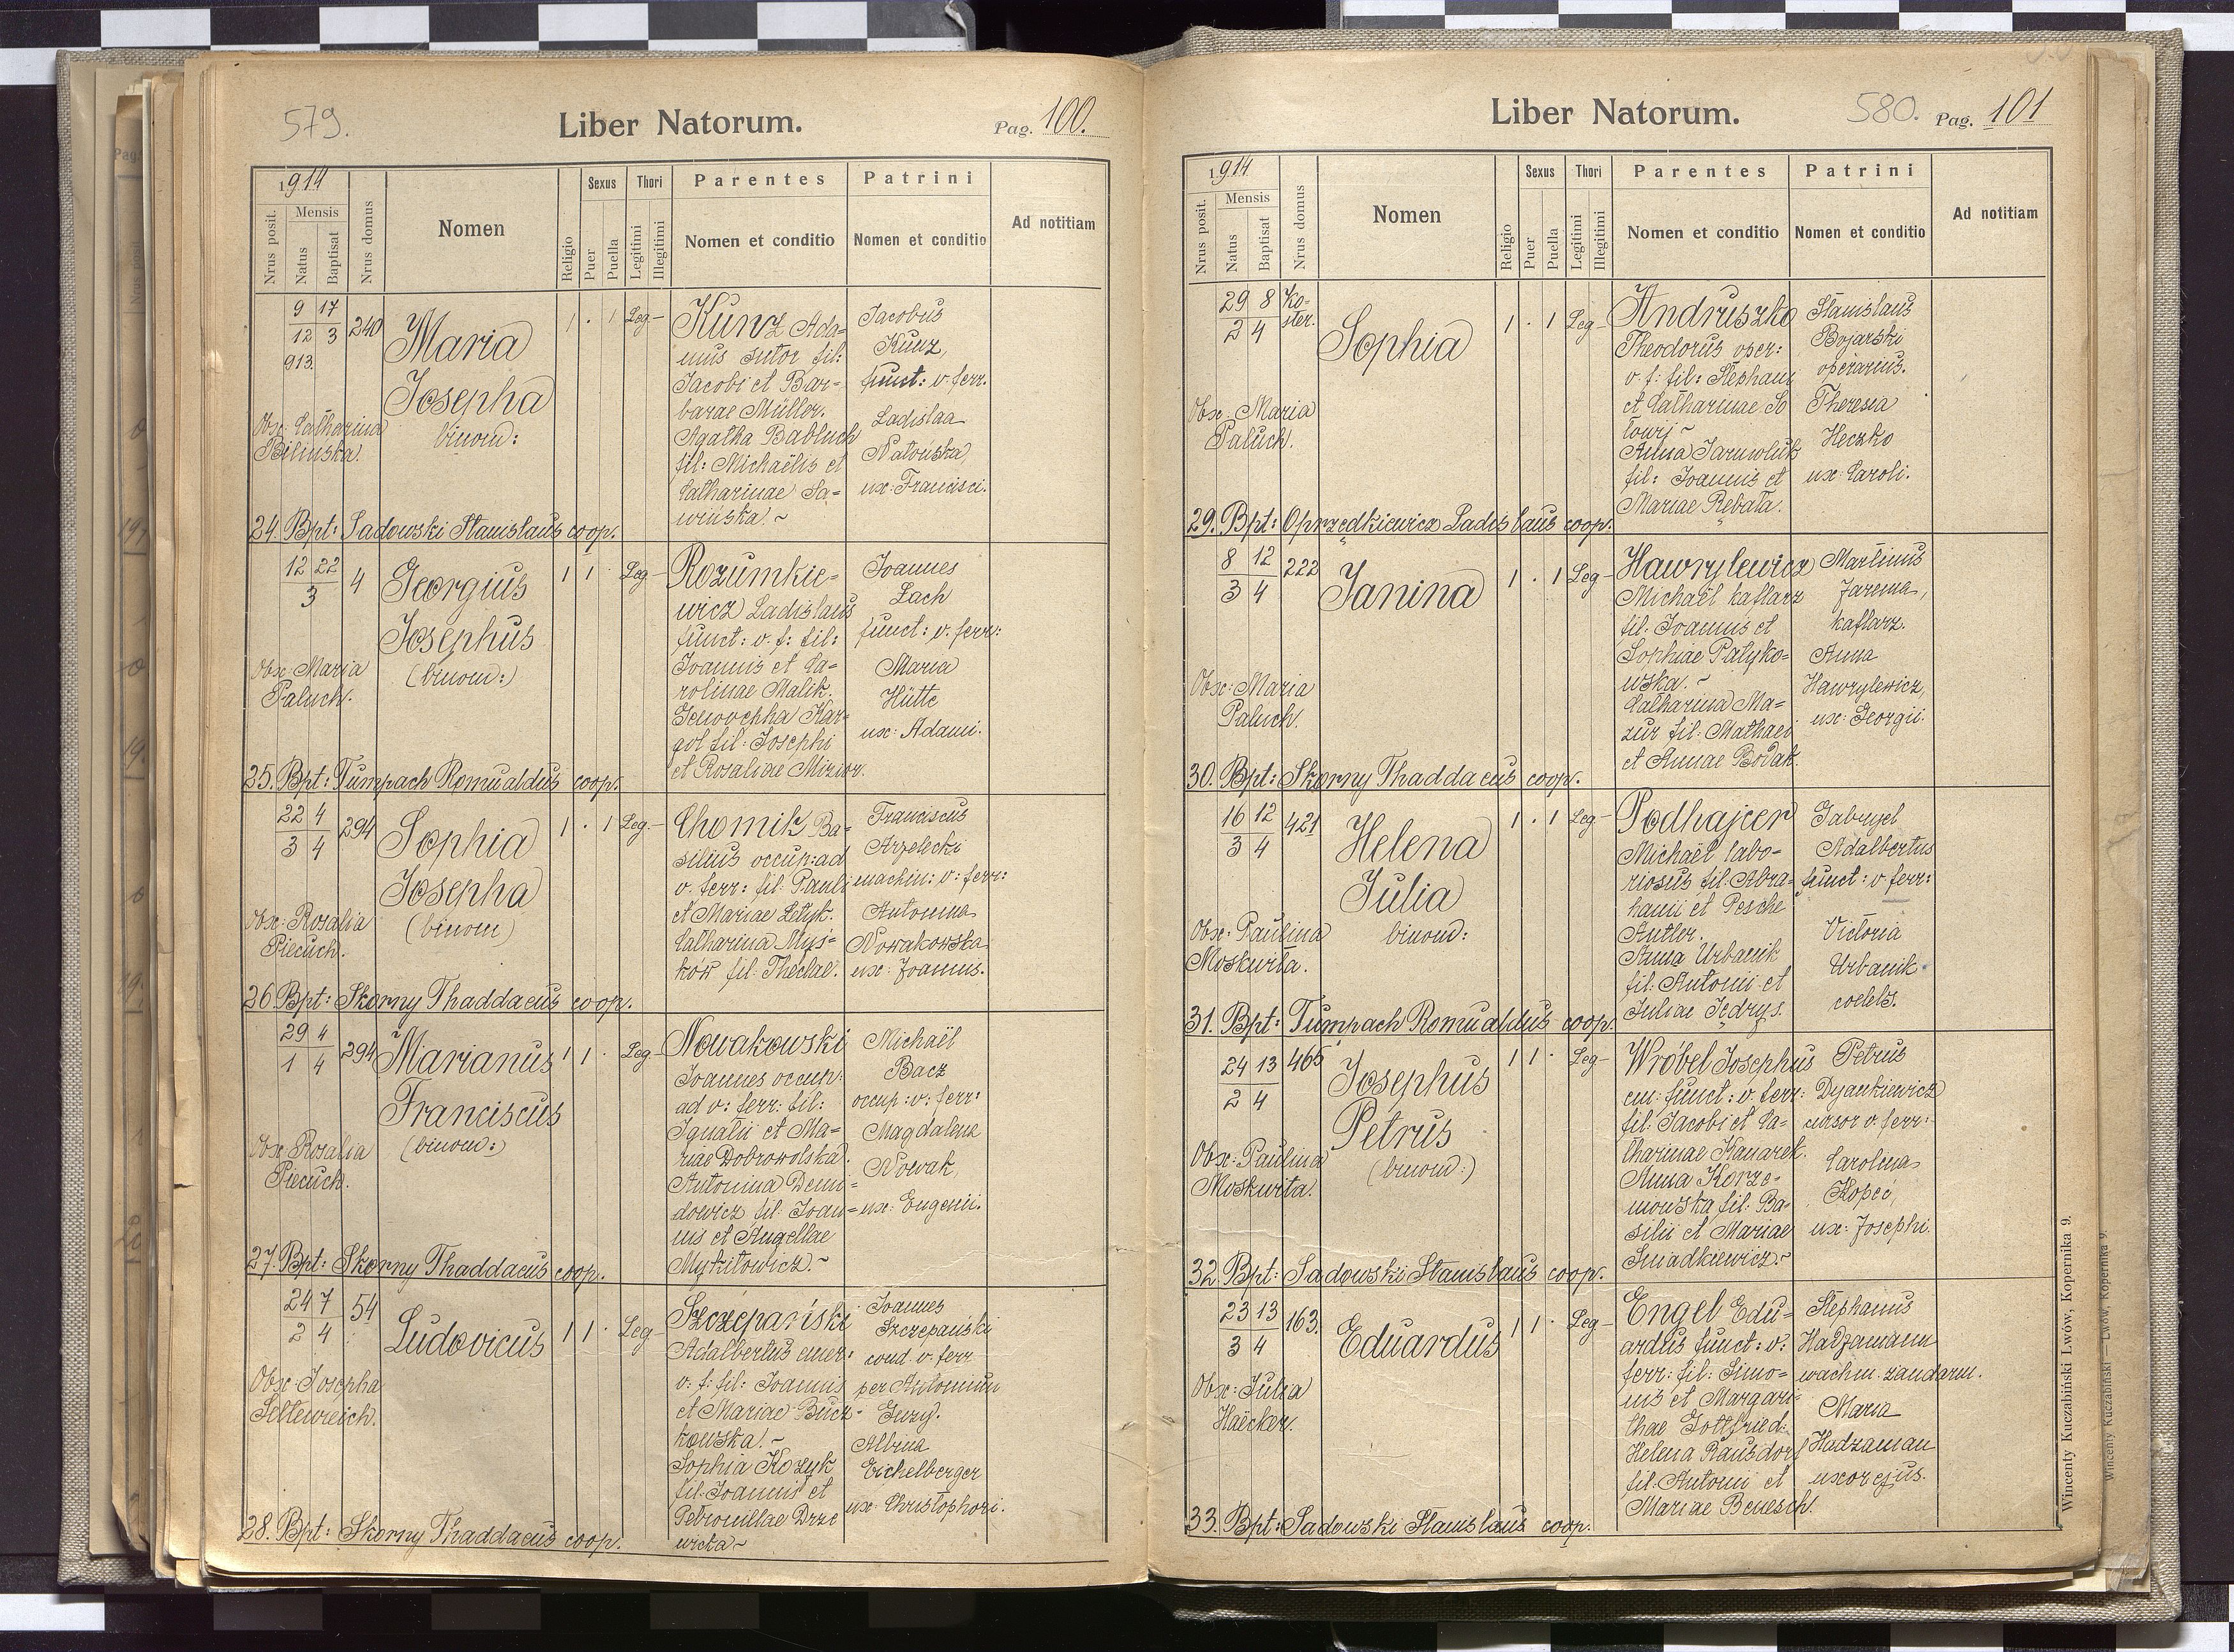 579.
Liber Natorum.
Pag. 100.
1914
Nrus posit.
Mensis
Natus
Baptisat
Nrus domus
Nomen
Religio
Sexus
Puer
Puella
Thori
Legitimi
Illegitimi
Parentes
Nomen et conditio
Patrini
Nomen et conditio
Ad notitiam
9 17
12 3
913.
240
Maria
Josepha
binom:
1 . 1 Leg-
Kunz Ada-
mus sutor fil:
Jacobi et Bar-
barae Müller.
Agatha Babluch
fil: Michaëlis et
Catharinae Sa-
wińska.~
Jacobus
Kunz,
funct: v. ferr.
Ladislaa
Natońska
ux: Francisci.
Obx: Catharina
Bilińska.
24. Bpt: Sadowski Stanislaus coop.
12 22
3
4
Georgius
Josephus
(binom:)
1 1 . Leg-
Rozumkie-
wicz Ladislaus
funct: v. f: fil:
Joannis et Ca-
rolinae Malik.
Genovepha Kar-
gol fil: Josephi
et Rosaliae Mizior.
Joannes
Lach
funct: v. ferr:
Maria
Hütte
ux: Adami.
Obx: Maria
Paluch.
25. Bpt: Tumpach Romualdus coop.
22 4
3 4
294
Sophia
Josepha
(binom)
1 . 1 Leg.-
Chomik Ba-
silius occup: ad
v. ferr: fil: Pauli
et Mariae Letyk.
Catharina Myś-
ków fil: Theclae.
Franciscus
Arzelecki
machin: v: ferr:
Antonina
Nowakowska
ux: Joannis.
Obx: Rosalia
Piecuch.
26. Bpt: Skorny Thaddaeus coop.
29 4
1 4
294
Marianus
Franciscus
(binom:)
1 1 . Leg-
Nowakowski
Joannes occup:
ad v: ferr: fil:
Ignatii et Ma-
riae Dobrowolska.
Antonina Demi-
dowicz fil: Joan-
nis et Angellae
Mykitowicz.~
Michaël
Bacz
occup: v: ferr:
Magdalena
Nowak,
ux: Eugenii.
Obx: Rosalia
Piecuch.
27. Bpt: Skorny Thaddaeus coop.
24 7
2 4
54
Ludovicus
1 1 . Leg-
Szczepański
Adalbertus emer:
v: f: fil: Joannis
et Mariae Bucz-
kowska.~
Sophia Kozyk
fil: Joannis et
Petronillae Drze
wicka~
Joannes
Szczepański
cond. v. ferr
per Antonium
Guzy.
Albina
Eichelberger
ux: Christophori.
Obx: Josepha
Seltenreich.
28. Bpt: Skorny Thaddaeus coop.
Liber Natorum.
580.
Pag. 101
1914
Nrus posit.
Mensis
Natus
Baptisat
Nrus domus
Nomen
Religio
Sexus
Puer
Puella
Thori
Legitimi
Illegitimi
Parentes
Nomen et conditio
Patrini
Nomen et conditio
Ad notitiam
29 8
2 4
Ko-
ster.
Sophia
1 . 1 Leg-
Andruszko
Theodorus oper:
v. f: fil: Stephani
et Catharinae So
towij~
Anna Jarmoluk
fil: Joannis et
Mariae Rębata.
Stanislaus
Bojarski
operarius.
Theresia
Heczko
ux: Caroli.
Obx: Maria
Paluch.
29. Bpt: Oprzędkiewicz Ladislaus coop.
8 12
3 4
222
Janina
1 . 1 Leg-
Hawrylewicz
Michaël kaflarz
fil: Joannis et
Sophiae Patyko-
wska.~
Catharina Ma-
zur fil: Mathaei
et Annae Bodak.
Martinus
Jarema,
kaflarz.
Anna
Hawrylewicz,
ux: Georgii.
Obx: Maria
Paluch.
30. Bpt: Skorny Thaddaeus coop.
16 12
3 4
421
Helena
Julia
binom:
1 . 1 Leg-
Podhajcer
Michaël labo-
riosus fil: Abra-
hami et Pesche
Antler.
Anna Urbanik
fil: Antonii et
Juliae Jędrys.
Gabryel
Adalbertus
funct: v ferr:
Victoria
Urbanik
coelebs.
Obx: Paulina
Moskwita.
31. Bpt: Tumpach Romualdus coop.
24 13
2 4
465
Josephus
Petrus
(binom:)
1 1 . Leg-
Wróbel Josephus
em: funct: v: ferr:
fil: Jacobi et Ca-
tharinae Kanarek.
Anna Korze-
niowska fil: Ba-
silii et Mariae
Sniadkiewicz.~
Petrus
Dyankiewicz
cursor v. ferr:
Carolina
Kopeć,
ux: Josephi.
Obx: Paulina
Moskwita.
32. Bpt: Sadowski Stanislaus coop.
23 13
3 4
163.
Eduardus
1 1 . Leg-
Engel Edu-
ardus funct: v:
ferr: fil: Simo-
nis et Margari-
thae Gottfried.
Helena Rausdorf
fil: Antonii et
Mariae Benesch.
Stephanus
Hadzamann
wachm. zandarm.
Maria
Hadzaman
uxor ejus.
Obx: Julia
Haëcker.
33. Bpt: Sadowski Stanislaus coop.
Wincenty Kuczabiński Lwów, Kopernika 9.
Wincenty Kuczabiński — Lwów, Kopernika 9.